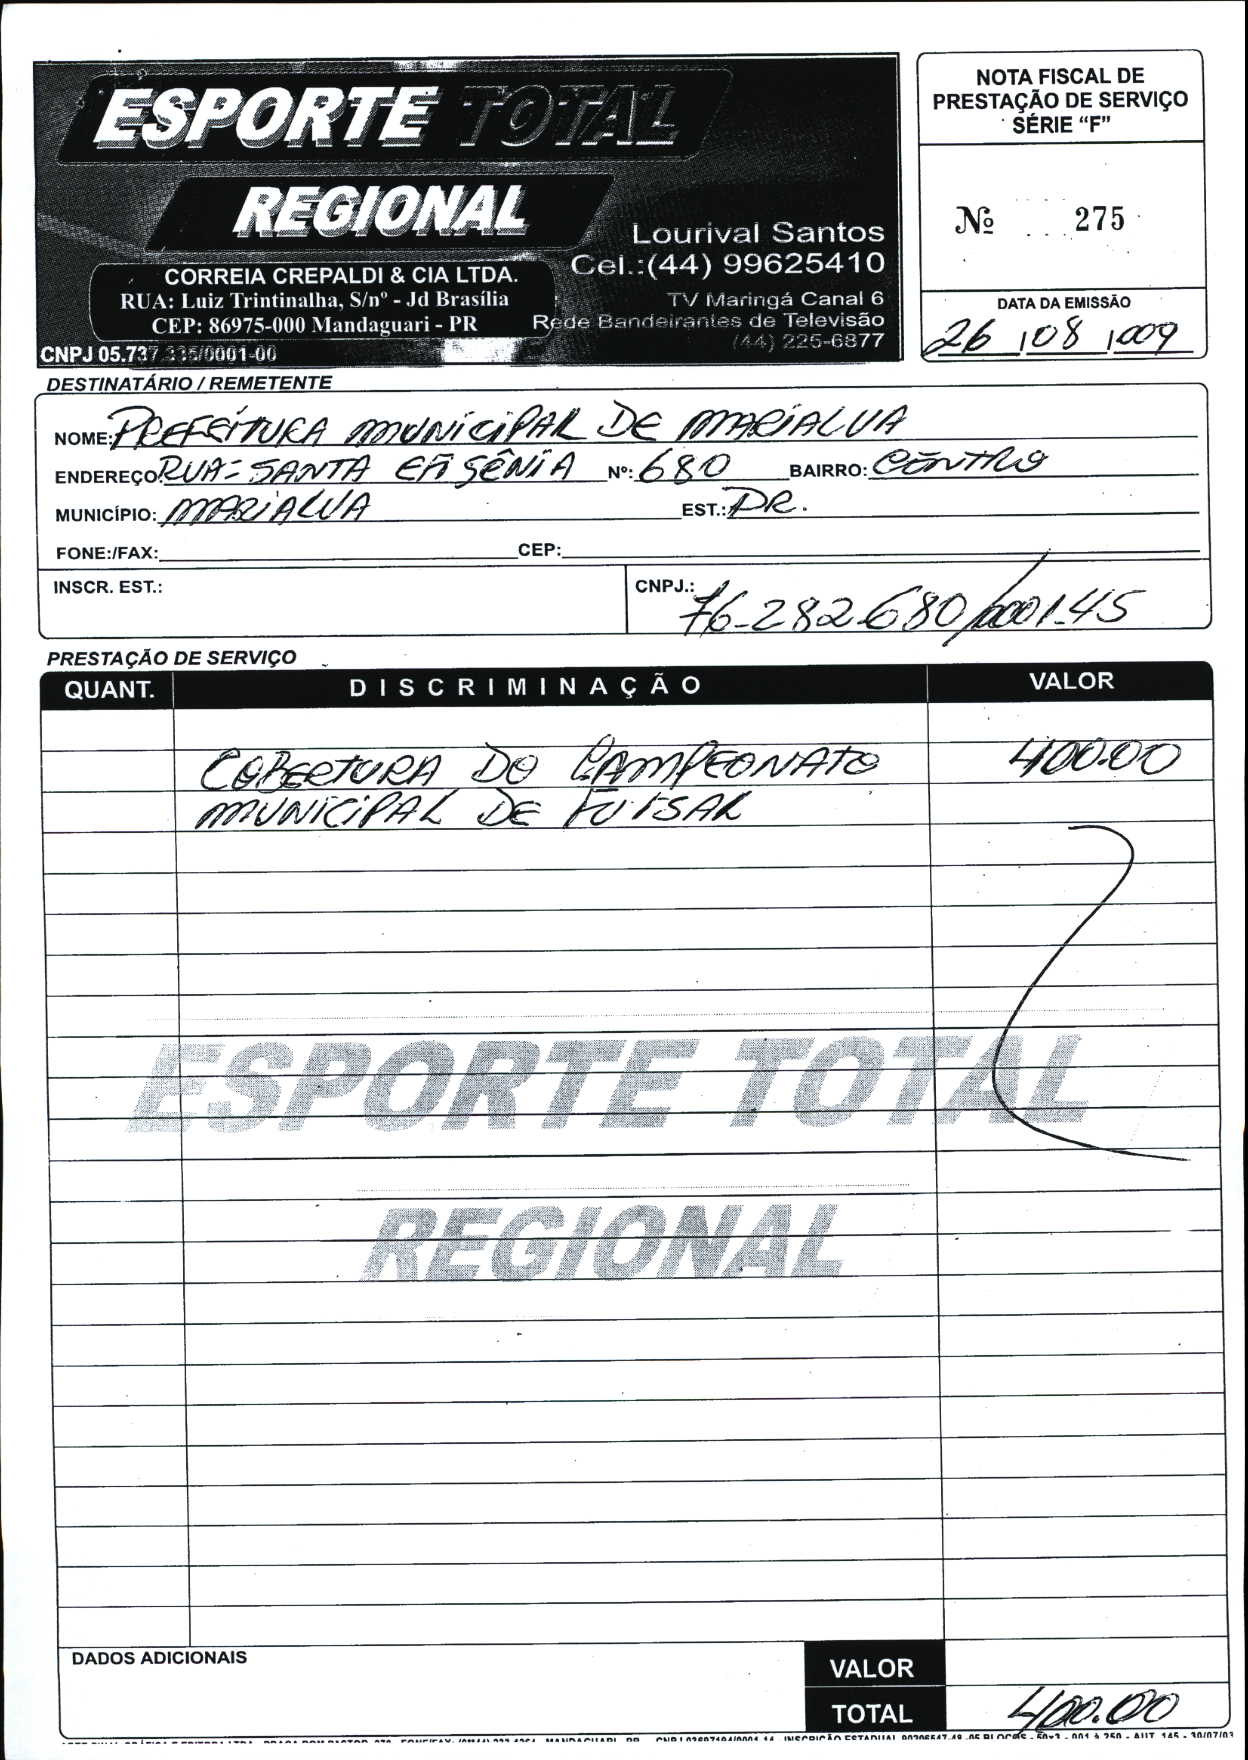 ESPORTE TOTAL
REGIONAL
Lourival Santos
Cel.:(44) 99625410
CORREIA CREPALDI & CIA LTDA.
RUA: Luiz Trintinalha, S/nº - Jd Brasília
CEP: 86975-000 Mandaguari - PR
TV Maringá Canal 6
Rede Bandeirantes de Televisão
(44) 225-6877
CNPJ 05.737.335/0001-00
NOTA FISCAL DE
PRESTAÇÃO DE SERVIÇO
SÉRIE “F”
Nº 275
DATA DA EMISSÃO
26/08/009
DESTINATÁRIO / REMETENTE
NOME: PREFEITURA MUNICIPAL DE MARIALVA
ENDEREÇO: RUA = SANTA EFIGÊNIA Nº: 680 BAIRRO: CENTRO
MUNICÍPIO: MARIALVA EST.: PR.
FONE:/FAX: CEP:
INSCR. EST.: CNPJ.: 76-282-680/0001-45
PRESTAÇÃO DE SERVIÇO
QUANT. DISCRIMINAÇÃO VALOR
COBERTURA DO CAMPEONATO 400.00
MUNICIPAL DE FUTSAL
ESPORTE TOTAL
REGIONAL
DADOS ADICIONAIS
VALOR
TOTAL 400.00